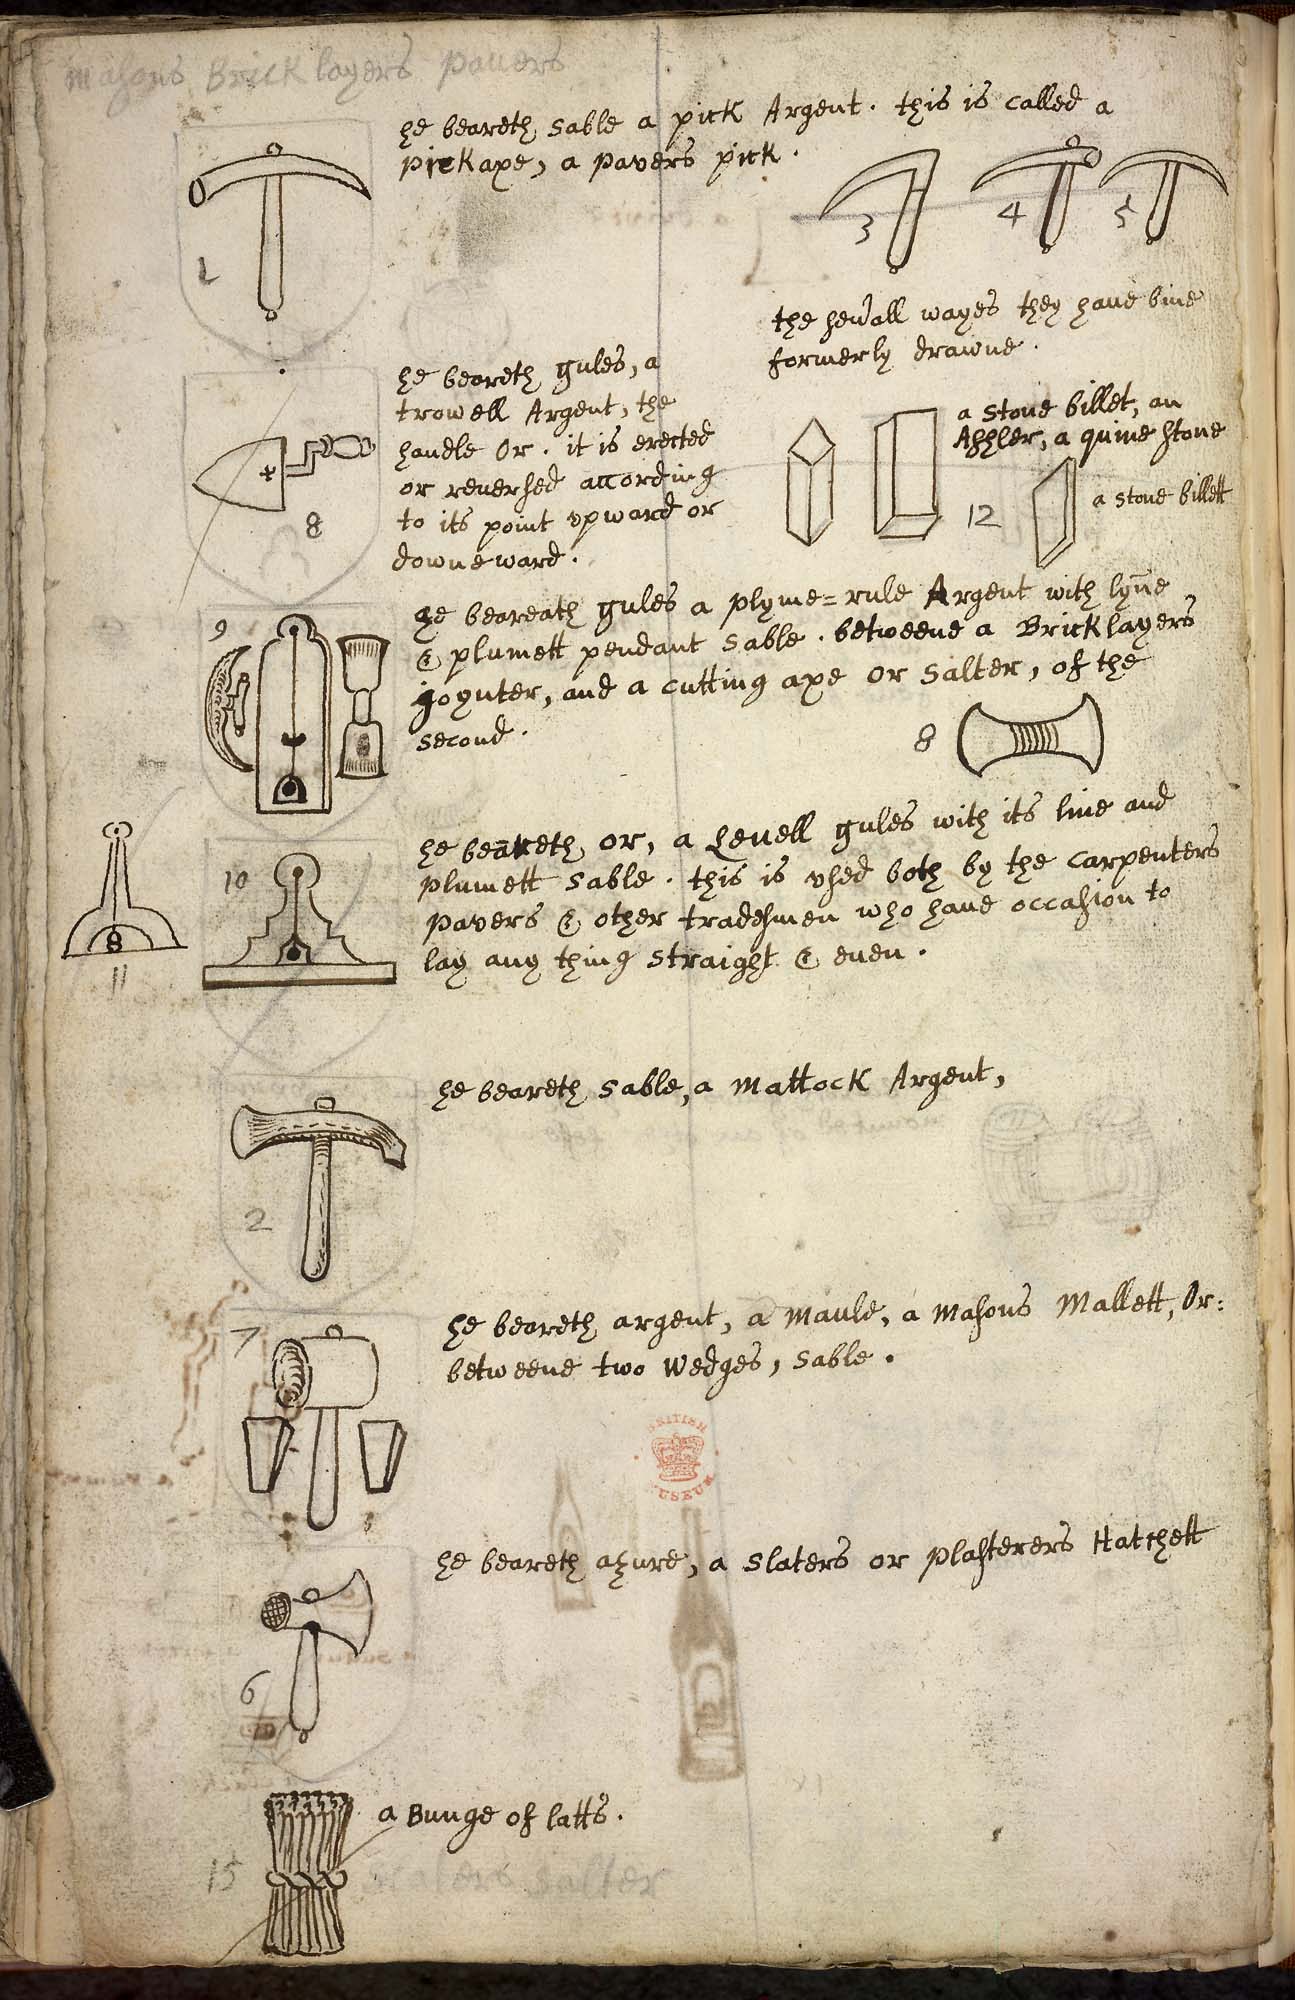 masons Bricklayers pavers
he beareth sable a pick Argent. this is called a
pickaxe, a pavers pick.
1
3
4
5
the severall wayes they have bine
formerly drawne.
he beareth gules, a
trowell Argent, the
handle Or. it is erected
or reversed according
to its point vpward or
downeward.
8
a stone billet, an
Ashler, a quine stone
12
a stone billett
he beareath gules a plyme=rule Argent with lyne
& plumett pendant sable. betweene a Bricklayers
joynter, and a cutting axe or salter, of the
second.
9
8
he beareth, or, a Levell gules with its line and
plumett sable. this is vsed both by the carpenters
pavers & other tradesmen who have occasion to
lay any thing straight & even.
10
11
he beareth sable, a Mattock Argent,
2
he beareth argent, a maule, a masons Mallett, Or:
betweene two wedges, sable.
7
BRITISH
MUSEUM
he beareth azure, a slaters or plasterers Hatchett
6
a Bunge of latts.
15
salter